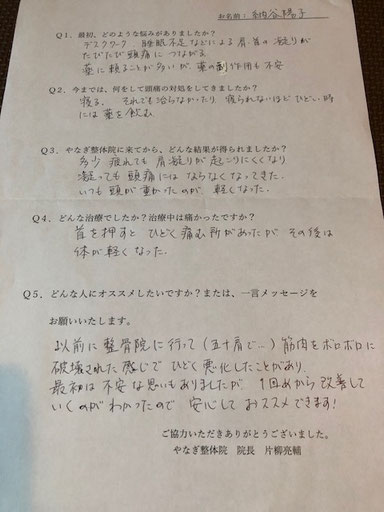 お名前：納谷陽子
Q1．最初、どのような悩みがありましたか？
デスクワーク 睡眠不足などによる肩、首の凝りが
たびたび頭痛につながる
薬に頼ることが多いが、薬の副作用も不安
Q2．今までは、何をして頭痛の対処をしてきましたか？
寝る、それでも治らなかったり 寝られないほどひどい時
には薬を飲む
Q3．やなぎ整体院に来てから、どんな結果が得られましたか？
多少 疲れても 肩凝りが起こりにくくなり
凝っても頭痛には ならなくなってきた。
いつも頭が重かったのが、軽くなった。
Q4．どんな治療でしたか？治療中は痛かったですか？
首を押すと ひどく痛む所があったが その後は
体が軽くなった。
Q5．どんな人にオススメしたいですか？または、一言メッセージを
お願いいたします。
以前に 整骨院に行って（五十肩で…）筋肉をボロボロに
破壊された感じで ひどく悪化したことがあり、
最初は不安な思いもありましたが 1回めから改善して
いくのがわかったので 安心しておススメできます！
ご協力いただきありがとうございました。
やなぎ整体院 院長 片柳亮輔